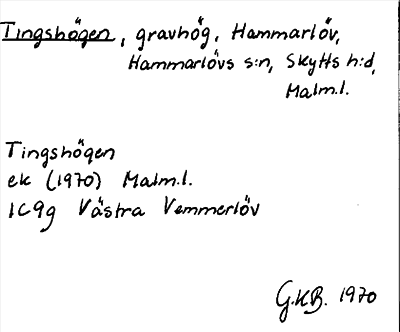 Tingshögen, gravhög, Hammarlöv,
Hammarlövs s:n, Skytts h:d,
Malm.l.
Tingshögen
ek (1970) Malm.l.
1C9g Västra Vemmerlöv
G.KB. 1970